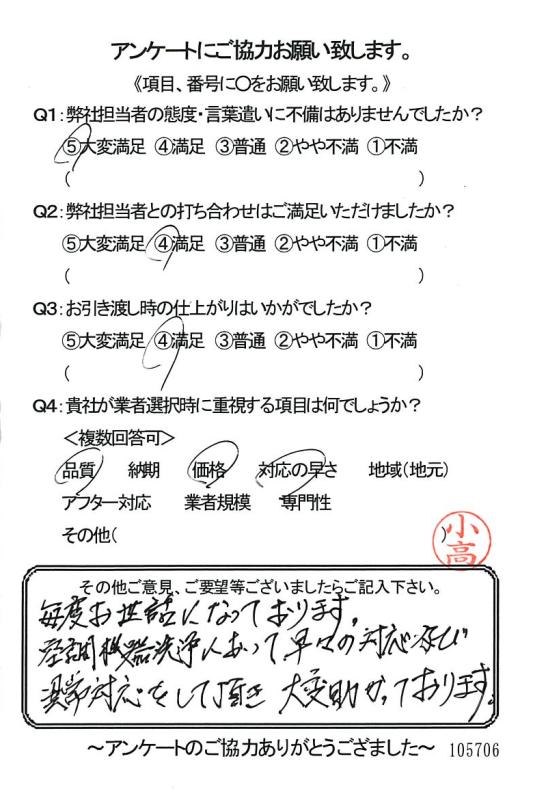 アンケートにご協力お願い致します。
《項目、番号に〇をお願い致します。》
Q1:弊社担当者の態度・言葉遣いに不備はありませんでしたか？
⑤大変満足 ④満足 ③普通 ②やや不満 ①不満
( )
Q2:弊社担当者との打ち合わせはご満足いただけましたか？
⑤大変満足 ④満足 ③普通 ②やや不満 ①不満
( )
Q3:お引き渡し時の仕上がりはいかがでしたか？
⑤大変満足 ④満足 ③普通 ②やや不満 ①不満
( )
Q4:貴社が業者選択時に重視する項目は何でしょうか？
＜複数回答可＞
品質 納期 価格 対応の早さ 地域(地元)
アフター対応 業者規模 専門性
その他( )
小高
その他ご意見、ご要望等ございましたらご記入下さい。
毎度お世話になっております。
空調機器洗浄にあって早々の対応及び
異常対応をして頂き 大変助かっております。
～アンケートのご協力ありがとうござました～ 105706